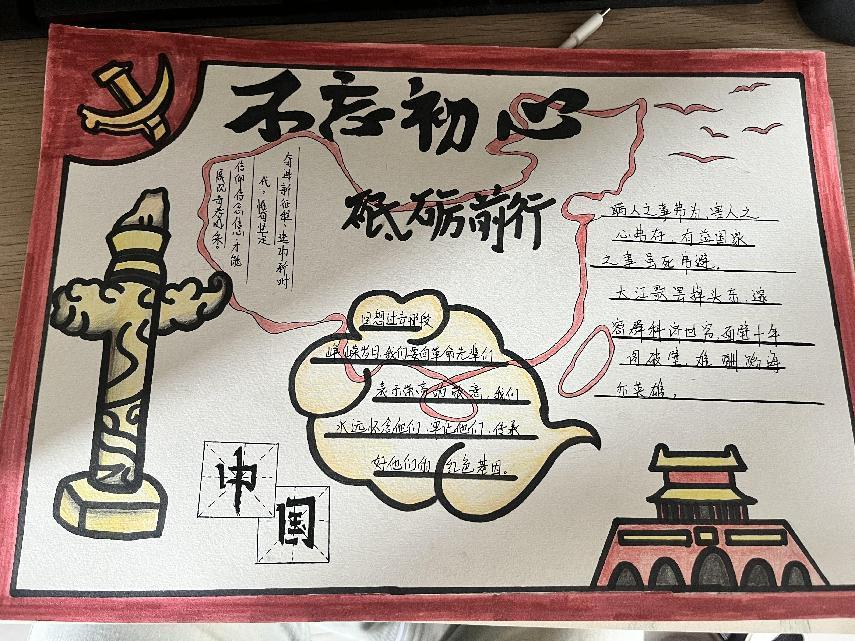 不忘初心
砥砺前行
奋进新征程,建功新时
代,惟有坚定
信仰信念信心才能
祸人之事带为,害人之
心弗存,有益国家
之事虽死弗避。
大江歌罢掉头东,邃
密群科济世穷,面壁十年
图破壁,难酬蹈海
亦英雄。
回想过去那段
峥嵘岁月,我们要向革命先辈们
表示崇高的敬意,我们
永远怀念他们、牢记他们,传承
好他们的红色基因。
中
国